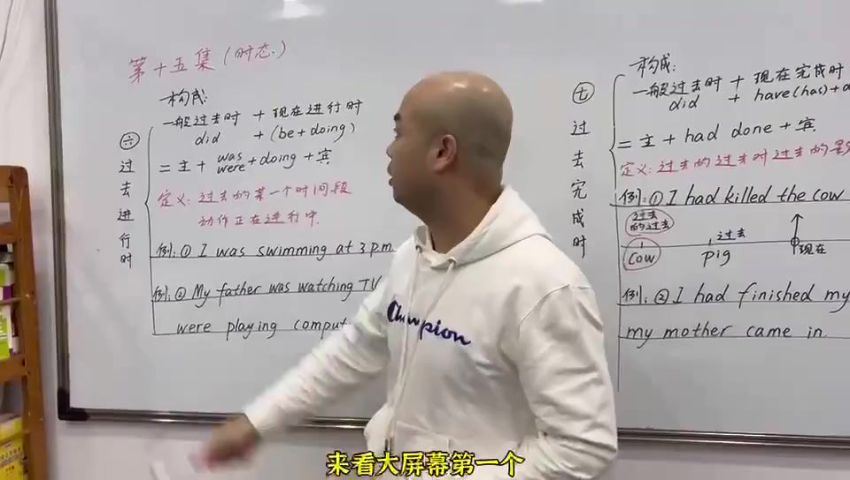 第十五集(时态.)
构成:
一般过去时 + 现在进行时
did + (be+doing)
六 过去进行时
= 主 + was were + doing + 宾
定义: 过去的某一个时间段
动作正在进行中.
例: ① I was swimming at 3 pm
例: ② My father was watching TV
were playing comput
构成:
一般过去时 + 现在完成时
did + have(has)+
七 过去完成时
= 主 + had done + 宾
定义: 过去的过去对过去的影
例: ① I had killed the cow
过去的过去 过去
cow pig 现在
例: ② I had finished my
my mother came in
Champion
来看大屏幕第一个